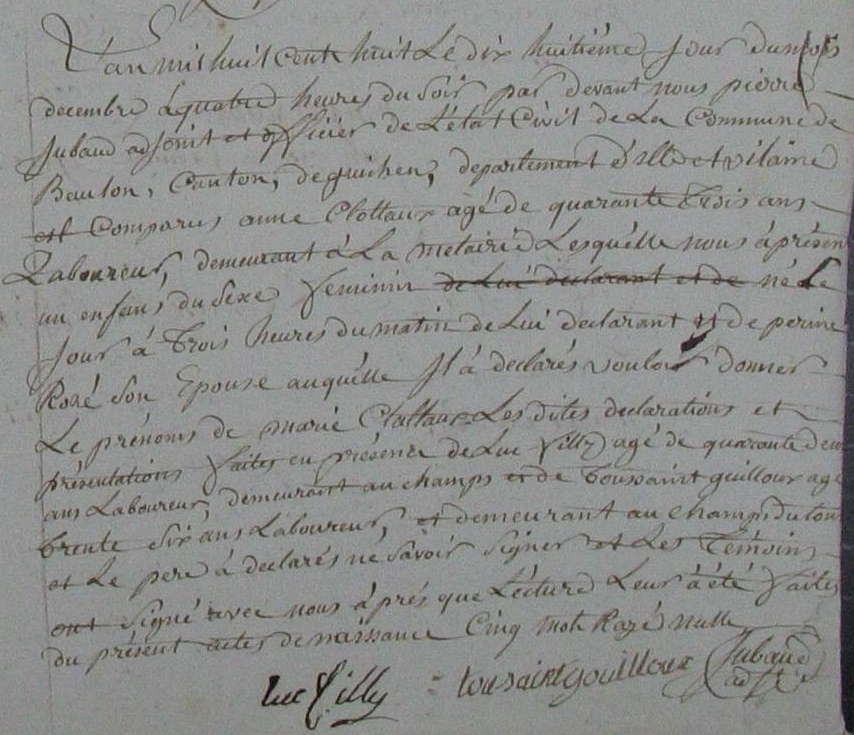 L'an mil huit cent huit Le dix huitiéme Jour du mois
decembre à quatre heures du Soir par devant nous pierre
Jubaud adjoint et officier de L'état Civil de La Commune de
Baulon, Canton, de guichen, departement d'Ille et vilaine
est Comparus anne Clottaux agé de quarante Trois ans
Laboureur, demeurant à La metairie Lesquélle nous à présen
un enfans du Sexe feminin de Lui declarant et de né Le
Jour à Trois heures du matin de Lui declarant et de perine
Rozé Son Epouse auquélle Il à declarés vouloir donner
Le prénoms de marie Clottaux Les dites declarations et
présentations faites en présence de Luc filly agé de quarante deux
ans Laboureur, demeurant au champs et de Toussaint guilloux agé
trente Six ans Laboureur, et demeurant au champs du
et Le pere à declarés ne Savoir Signer et Les Temoins
ont Signé avec nous à prés que Lecture Leur à été faites
du présent actes de naissance Cinq mots Razé nulle
luc filly tousaint gouilloux Jubaud
adjt